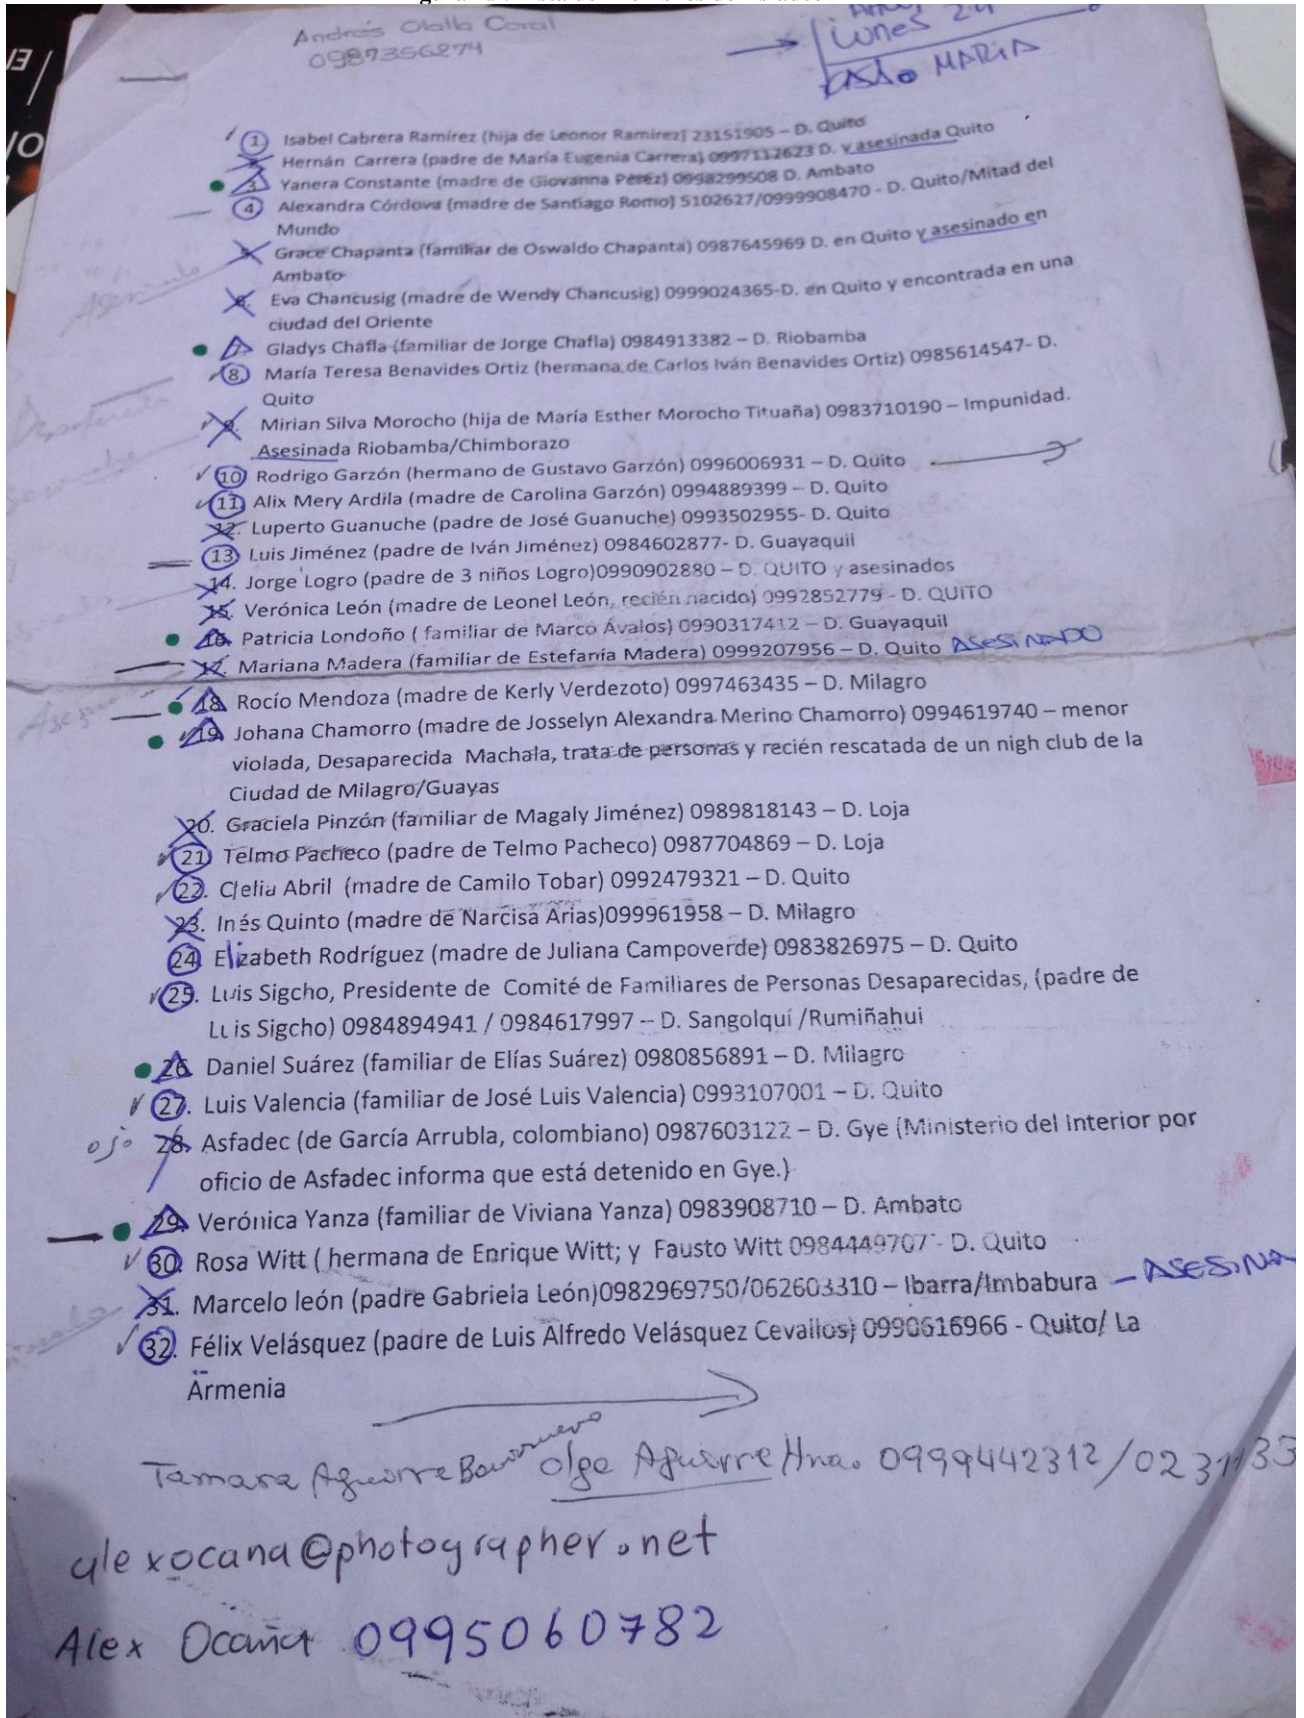 Andrés Olalla Coral
0987356274
Lunes 24
MARIA
1 Isabel Cabrera Ramírez (hija de Leonor Ramírez) 23151905 – D. Quito
Hernán Carrera (padre de María Eugenia Carrera) 0997112623 D. y asesinada Quito
3 Yanera Constante (madre de Giovanna Pérez) 0998299508 D. Ambato
4 Alexandra Córdova (madre de Santiago Romo) 5102627/0999908470 - D. Quito/Mitad del
Mundo
Grace Chapanta (familiar de Oswaldo Chapanta) 0987645969 D. en Quito y asesinado en
Ambato
6. Eva Chancusig (madre de Wendy Chancusig) 0999024365-D. en Quito y encontrada en una
ciudad del Oriente
7. Gladys Chafla (familiar de Jorge Chafla) 0984913382 – D. Riobamba
8. María Teresa Benavides Ortiz (hermana de Carlos Iván Benavides Ortiz) 0985614547- D.
Quito
9. Mirian Silva Morocho (hija de María Esther Morocho Tituaña) 0983710190 – Impunidad.
Asesinada Riobamba/Chimborazo
10 Rodrigo Garzón (hermano de Gustavo Garzón) 0996006931 – D. Quito
11. Alix Mery Ardila (madre de Carolina Garzón) 0994889399 – D. Quito
12. Luperto Guanuche (padre de José Guanuche) 0993502955- D. Quito
13 Luis Jiménez (padre de Iván Jiménez) 0984602877- D. Guayaquil
14. Jorge Logro (padre de 3 niños Logro)0990902880 – D. QUITO y asesinados
15. Verónica León (madre de Leonel León, recién nacido) 0992852779 - D. QUITO
16. Patricia Londoño ( familiar de Marco Ávalos) 0990317412 – D. Guayaquil
17. Mariana Madera (familiar de Estefanía Madera) 0999207956 – D. Quito ASESINADO
18. Rocío Mendoza (madre de Kerly Verdezoto) 0997463435 – D. Milagro
19. Johana Chamorro (madre de Josselyn Alexandra Merino Chamorro) 0994619740 – menor
violada, Desaparecida Machala, trata de personas y recién rescatada de un nigh club de la
Ciudad de Milagro/Guayas
20. Graciela Pinzón (familiar de Magaly Jiménez) 0989818143 – D. Loja
21 Telmo Pacheco (padre de Telmo Pacheco) 0987704869 – D. Loja
22. Clelia Abril (madre de Camilo Tobar) 0992479321 – D. Quito
23. Inés Quinto (madre de Narcisa Arias)099961958 – D. Milagro
24 Elizabeth Rodríguez (madre de Juliana Campoverde) 0983826975 – D. Quito
25. Luis Sigcho, Presidente de Comité de Familiares de Personas Desaparecidas, (padre de
Luis Sigcho) 0984894941 / 0984617997 – D. Sangolquí /Rumiñahui
26. Daniel Suárez (familiar de Elías Suárez) 0980856891 – D. Milagro
27. Luis Valencia (familiar de José Luis Valencia) 0993107001 – D. Quito
ojo 28. Asfadec (de García Arrubla, colombiano) 0987603122 – D. Gye (Ministerio del Interior por
oficio de Asfadec informa que está detenido en Gye.)
29. Verónica Yanza (familiar de Viviana Yanza) 0983908710 – D. Ambato
30. Rosa Witt ( hermana de Enrique Witt; y Fausto Witt 0984449707 - D. Quito
31. Marcelo león (padre Gabriela León)0982969750/062603310 – Ibarra/Imbabura – ASESINA
32. Félix Velásquez (padre de Luis Alfredo Velásquez Cevallos) 0990616966 - Quito/ La
Armenia
Tamara Aguirre Olga Aguirre Hna. 0999442312/0231133
alexocana@photographer.net
Alex Ocaña 0995060782